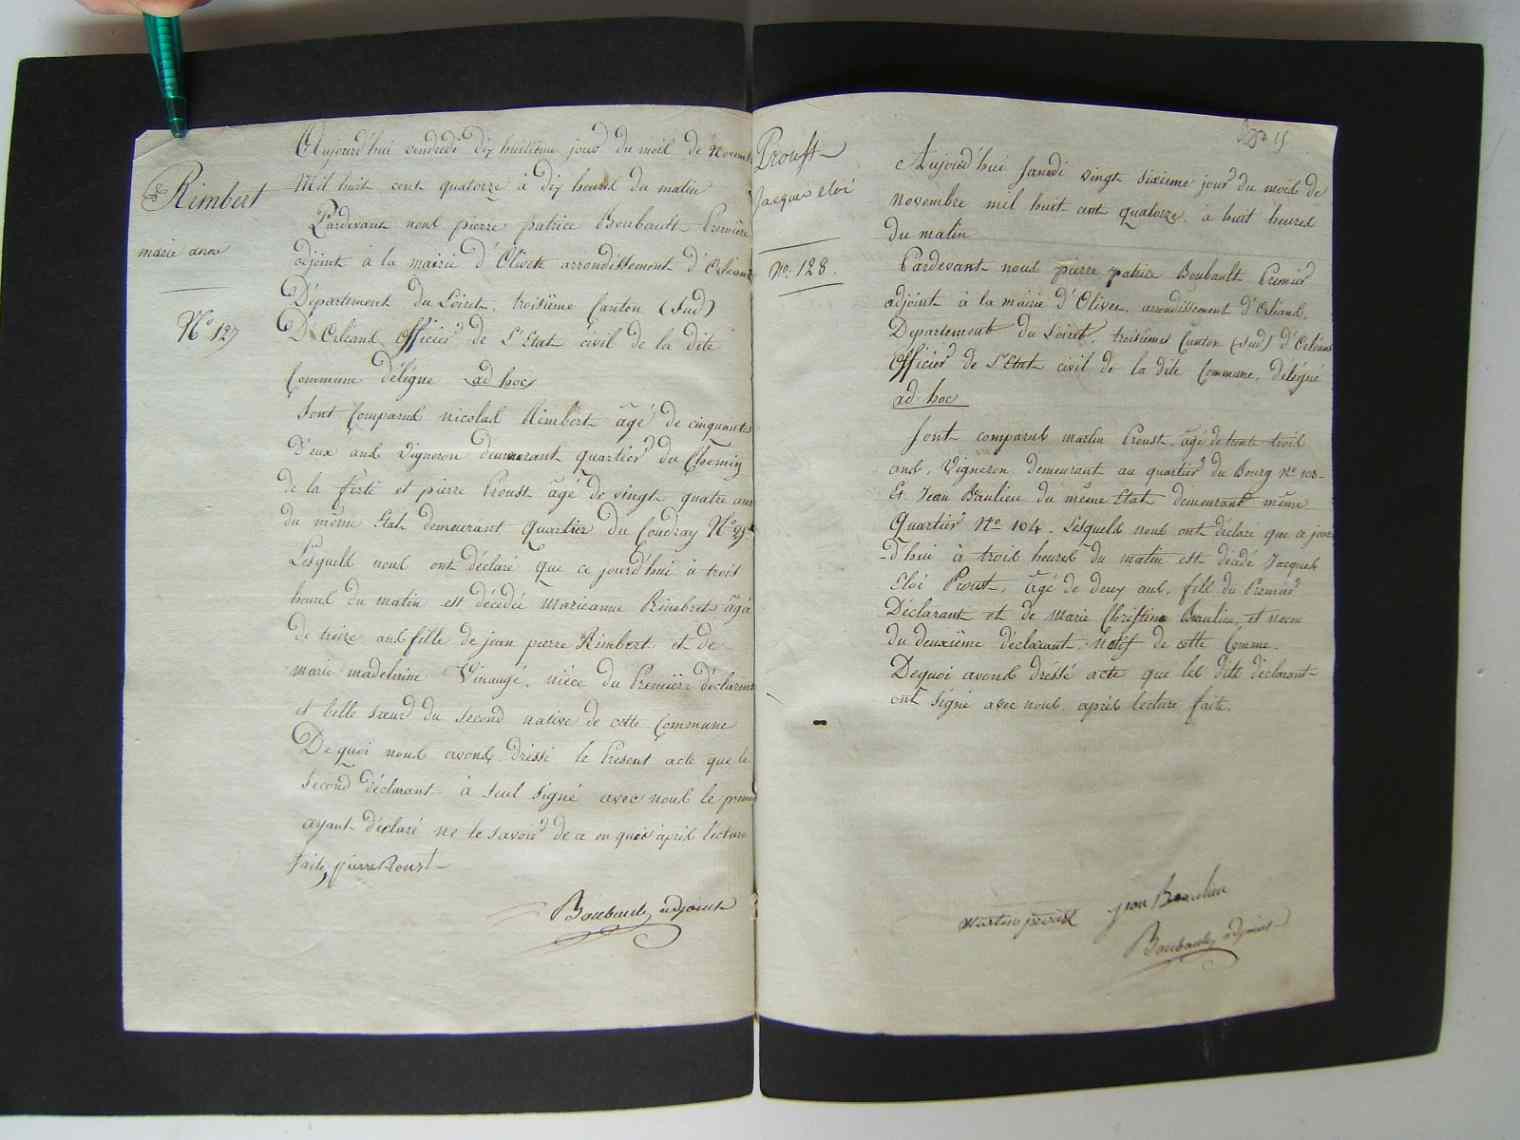 Rimbert
marie anne
N° 127
Aujourd'hui vendredi dix huitième jour du mois de Novemb
Mil huit cent quatorze à dix heures du matin
Pardevant nous pierre patrice Boubault Premiere
adjoint à la mairie d'Olivet arrondissement d'Orléans
Département du Loiret, troisième Canton (Sud)
D'Orléans officier de l'Etat civil de la dite
Commune délégué ad hoc
Sont Comparus nicolas Rimbert âgé de cinquante
Deux ans vigneron demeurant quartier du Chemin
de la ferté et pierre Proust âgé de vingt quatre ans
du même Etat demeurant Quartier du Coudray N° 95
Lesquels nous ont déclaré que ce jourd'hui à trois
heures du matin est décédée marieanne Rimbert âgée
de treize ans fille de jean pierre Rimbert et de
marie madeleine nièce du Premiere déclarant
et belle soeur du second native de cette Commune
De quoi nous avons dressé le Present acte que le
second déclarant à seul signé avec nous le premier
ayant déclaré ne le savoir de ce enquis après lecture
faite, pierre Proust
Boubault adjoint
15
Proust
Jacques eloi
N° 128.
Aujourd'hui Samdi vingt sixieme jour du mois de
Novembre mil huit cent quatorze, à huit heures
du matin
Pardevant nous pierre patrice Boubault Premier
adjoint à la mairie d'Olivet, arrondissement d'Orléans,
Departement du Loiret, troisième Canton (Sud) d'Orléans
officier de l'Etat civil de la dite Commune, délégué
ad hoc
Sont comparus martin Proust, âgé de trente trois
ans, Vigneron demeurant au quartier du Bourg N° 103
Et Jean Beaulieu du même Etat demeurant même
Quartier N° 104. Lesquels nous ont déclaré que ce jour
-d'hui à trois heures du matin est décédé Jacques
Eloi Proust, âgé de deux ans, fils du Premier
Déclarant et de Marie Christine Beaulieu, et neveu
du deuxième déclarant, natif de cette Comme.
De quoi avons dréssé acte que les dits déclarant
ont signé avec nous, après lecture faite.
martin proust jean Beaulieu
Boubault adjoint